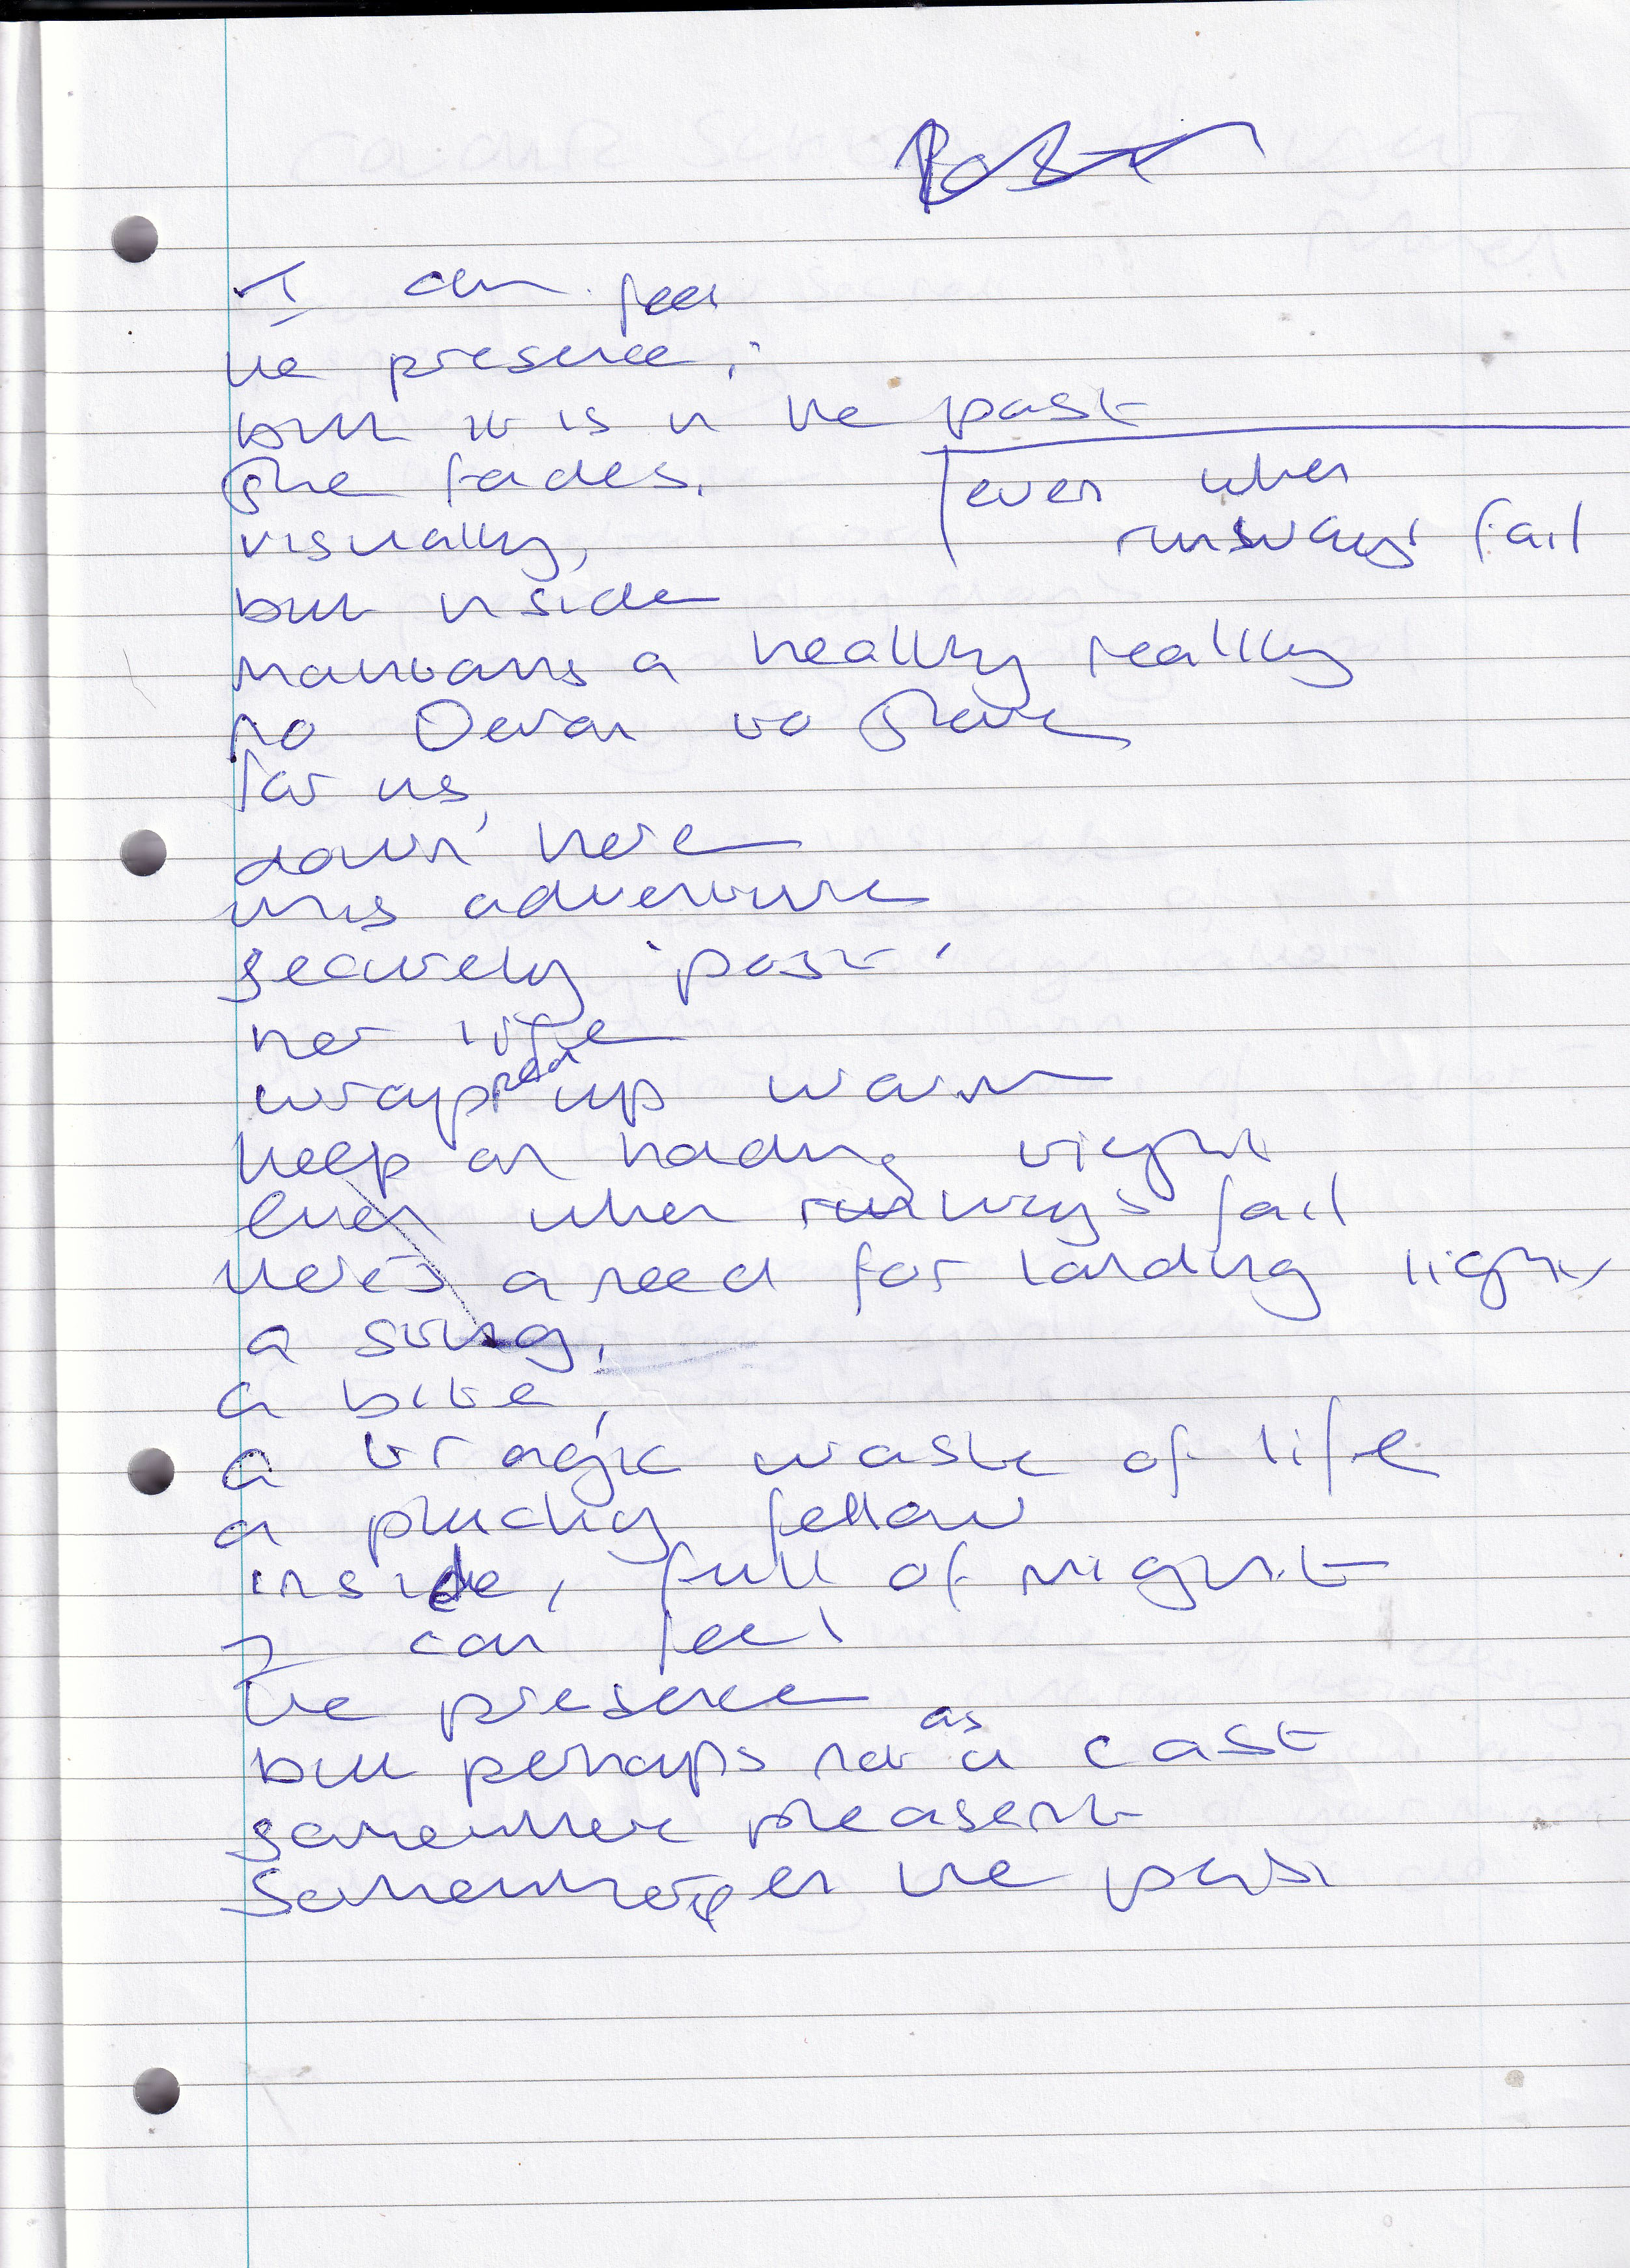 Past
I can feel
the presence,
but it is in the past
She fades,
even when
runways fail
visually,
but inside
maintains a healthy reality
no Devon to Steve
for us,
down here
this adventure
securely 'past'
her life
wrapped up warm
keep on holding right
even when runways fail
there's a need for landing lights
a sting,
a bite,
a tragic waste of life
a plucky fellow
inside, full of might
I can feel
the presence
but perhaps not as a cast
somewhere pleasent
somewhere in the past